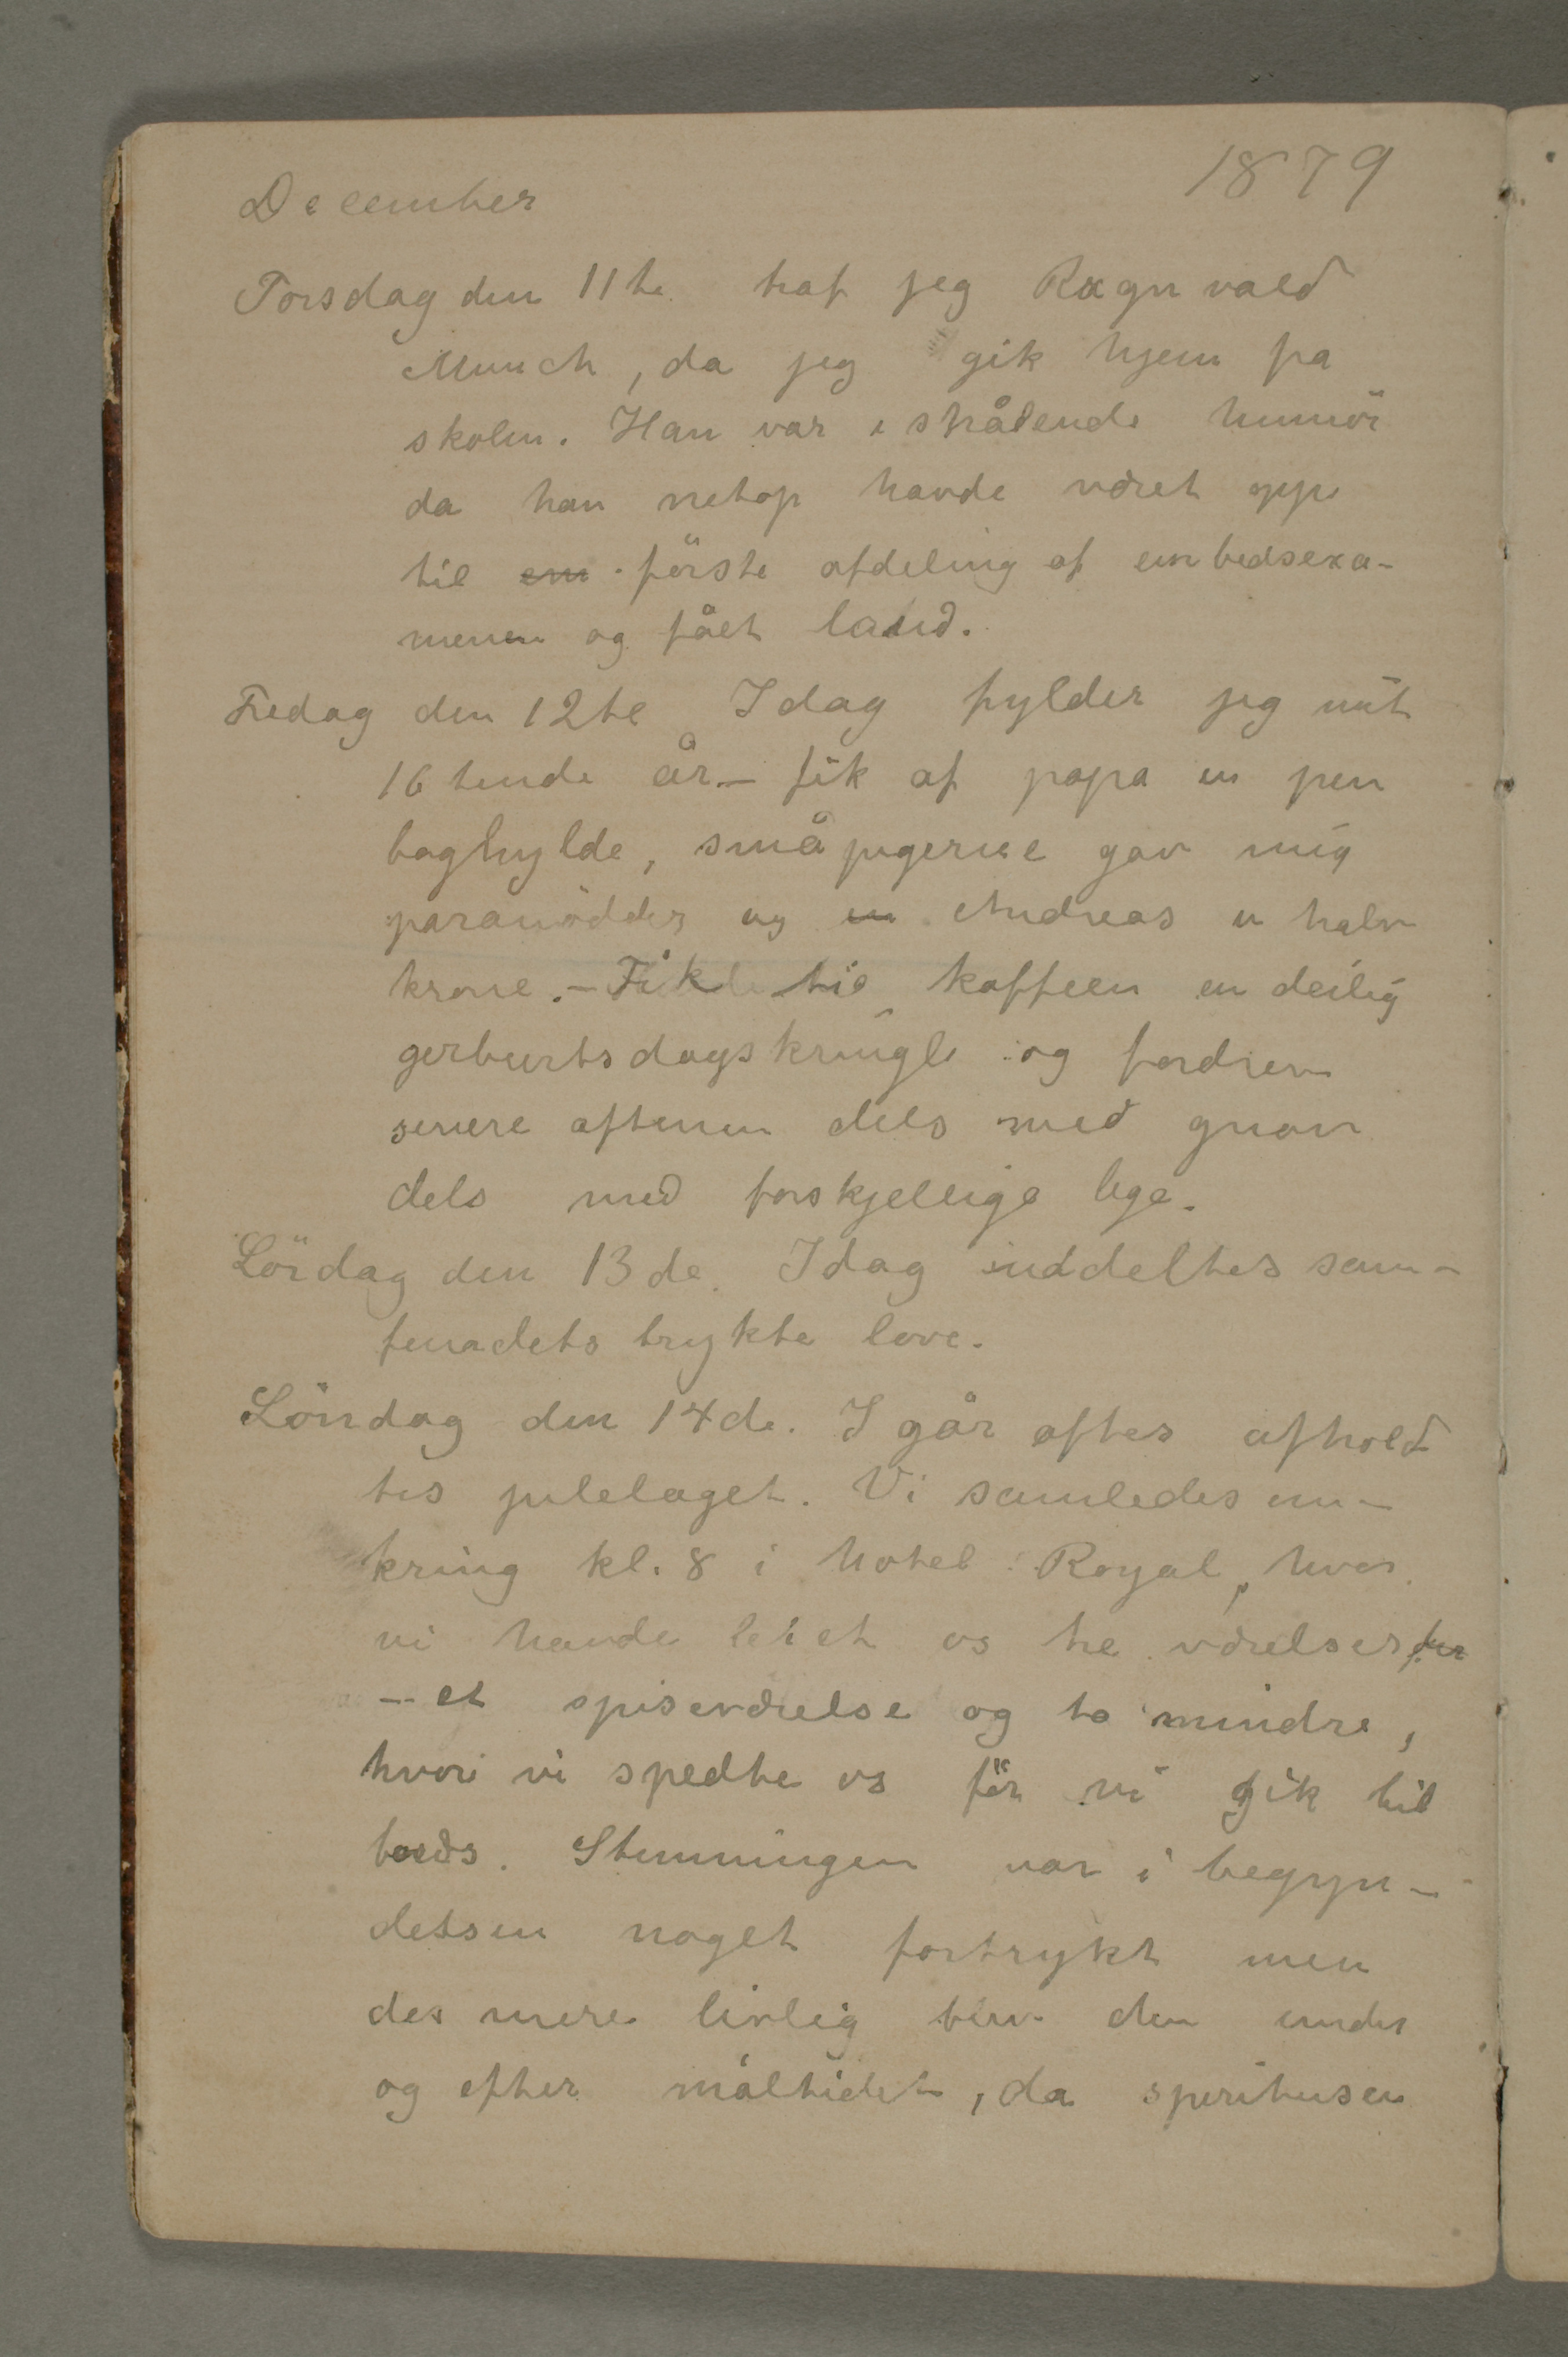 December 1879
Torsdag den 11te traf jeg Ragnvald
Munch, da jeg gik hjem fra
skolen. Han var i strålende humör
da han netop havde været oppe
til em förste afdeling af embedsexa-
menen og fået laud.
Fredag den 12te Idag fylder jeg mit
16 tende år – fik af papa en pen
boghylde, småpigerne gav mig
paranödder og en Andreas en halv
krone. – Fik til kaffeen en deilig
gerburtsdagskringle og fordrev
senere aftenen dels med gnav
dels med forskjellige lege.
Lördag den 13de. Idag uddeltes sam-
fundets trykte love.
Söndag den 14de. I går aftes afhold
tes julelaget. Vi samledes om-
kring kl. 8 i hotel Royal, hvor
vi havde leiet os tre værelser,
– et spiseværelse og to mindre,
hvori vi spedte os för vi gik til
bords. Stemningen var i begyn-
delsen noget fortrykt men
des mere livlig blev den under
og efter måltidet, da spiritusen